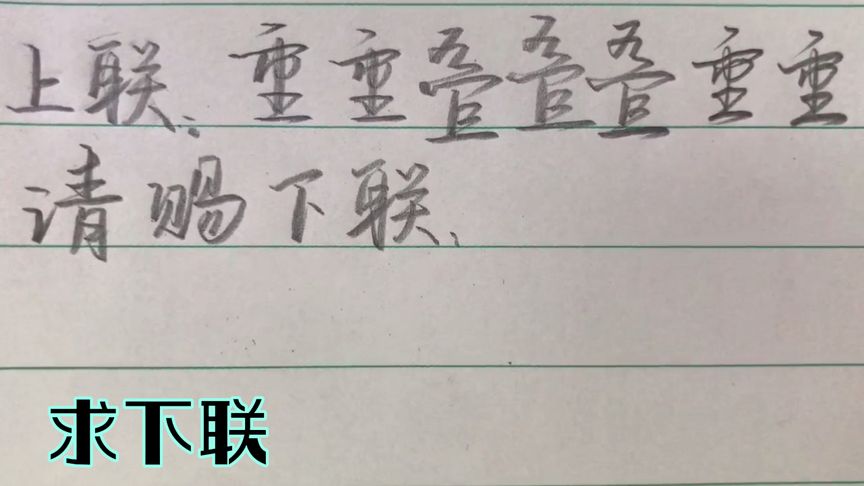 上联:重重叠叠叠重重
请赐下联.
求下联